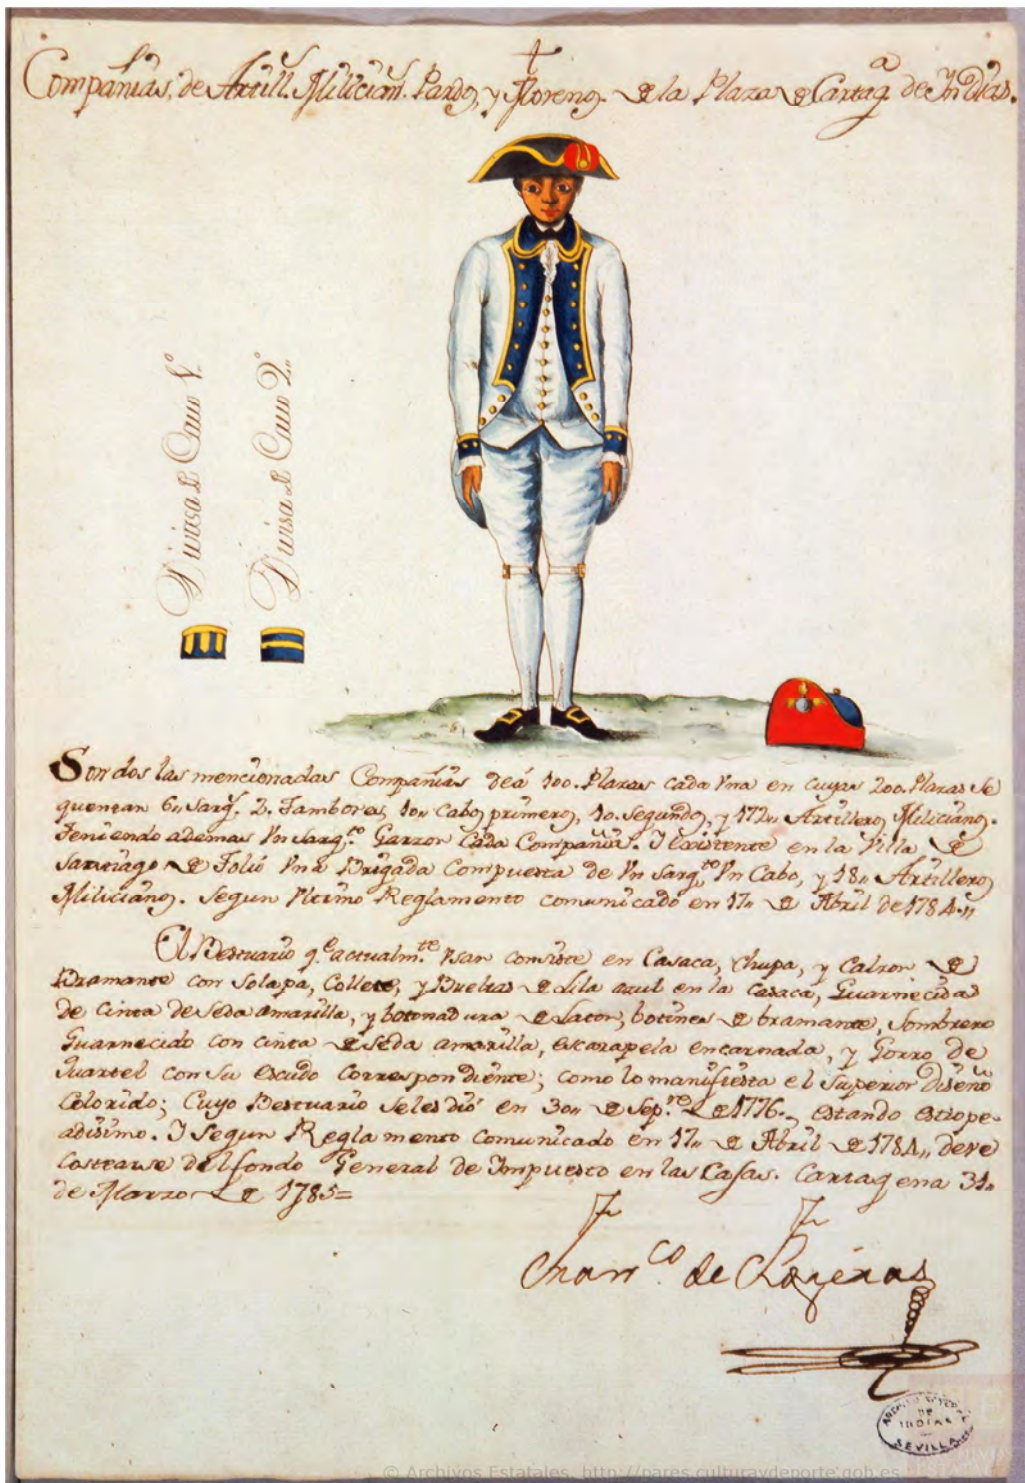 †
Compañias, de Artill.ª Milician.s Pardos, y Morenos. de la Plaza de Cartag.ª de Indias.
Divisa de Cavo 1.º
Divisa de Cavo 2.º
Son dos las mencionadas Compañias de á 100. Plazas cada Vna en cuyas 200. Plazas se
quentan 6,, Sarg.s 2. Tambores, 10,, Cabos primeros, 10. Segundos, y 172,, Artilleros Milicianos.
Teniendo ademas Vn Sarg.to Garzon Cada Compañia. Y existente en la Villa de
Santiago de Tolú Vna Brigada Compuesta de Vn Sarg.to Vn Cabo, y 18,, Artilleros
Milicianos. Segun Vltimo Reglamento comunicado en 17,, de Abril de 1784.,,
El Bestuario q.e actualm.te Vsan consiste en Casaca, Chupa, y Calzon de
Bramante con Solapa, Collete, y Bueltas de Lila azul en la casaca, Guarnecidas
de Cinta de Seda amarilla, y botonadura de Laton, botines de bramante, Sombrero
Guarnecido con cinta de Seda amarilla, escarapela encarnada, y Gorro de
Quartel con su escudo Correspondiente; como lo manifiesta el Superior Diseño
Colorido; Cuyo Bestuario se les dió en 30,, de Sep.re de 1776., estando estrope-
adisimo. Y Segun Reglamento comunicado en 17,, de Abril de 1784,, deve
Costearse del fondo General de Impuesto en las Casas. Cartagena 31,,
de Marzo de 1785=
de
ARCHIVO GENERAL
DE
INDIAS
SEVILLA
© Archivos Estatales, http://pares.culturaydeporte.gob.es